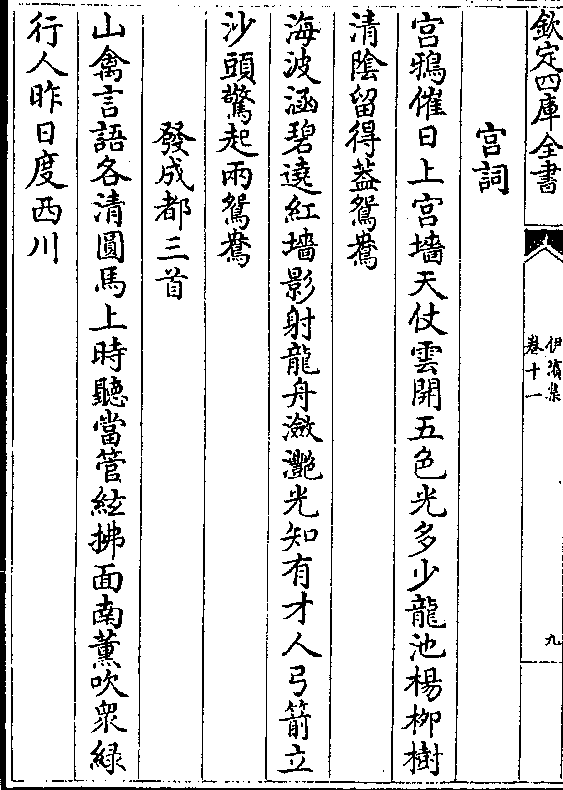 欽定四庫全書
伊濱集
卷十一
九
宫詞
宫鴉催日上宫墻天仗雲開五色光多少龍池楊栁樹
清陰留得葢鴛鴦
海波涵碧遶紅墻影射龍舟瀲灔光知有才人弓箭立
沙頭驚起兩鴛鴦
發成都三首
山禽言語各清圓馬上時聽當管絃拂面南薰吹衆緑
行人昨日度西川